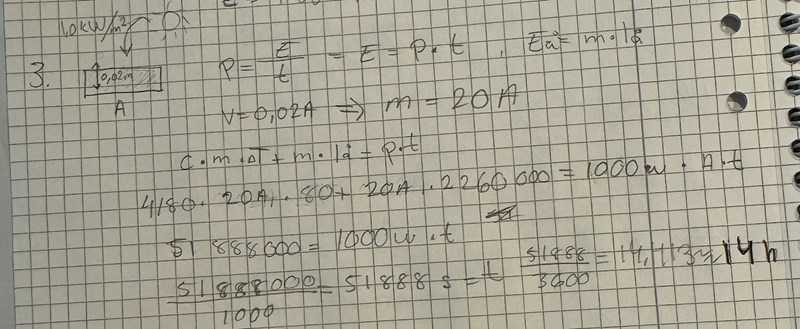 1,0 kW/m²
3.
0,02m
A
P = E/t = E = P·t , Eå = m·lå
V = 0,02A ⇒ m = 20A
C·m·ΔT + m·lå = P·t
4180 · 20A · 80 + 20A · 2260000 = 1000w · A · t
51 888000 = 1000w · t
51888000/1000 = 51888 s = t 51888/3600 = 14,413 ≈ 14 h